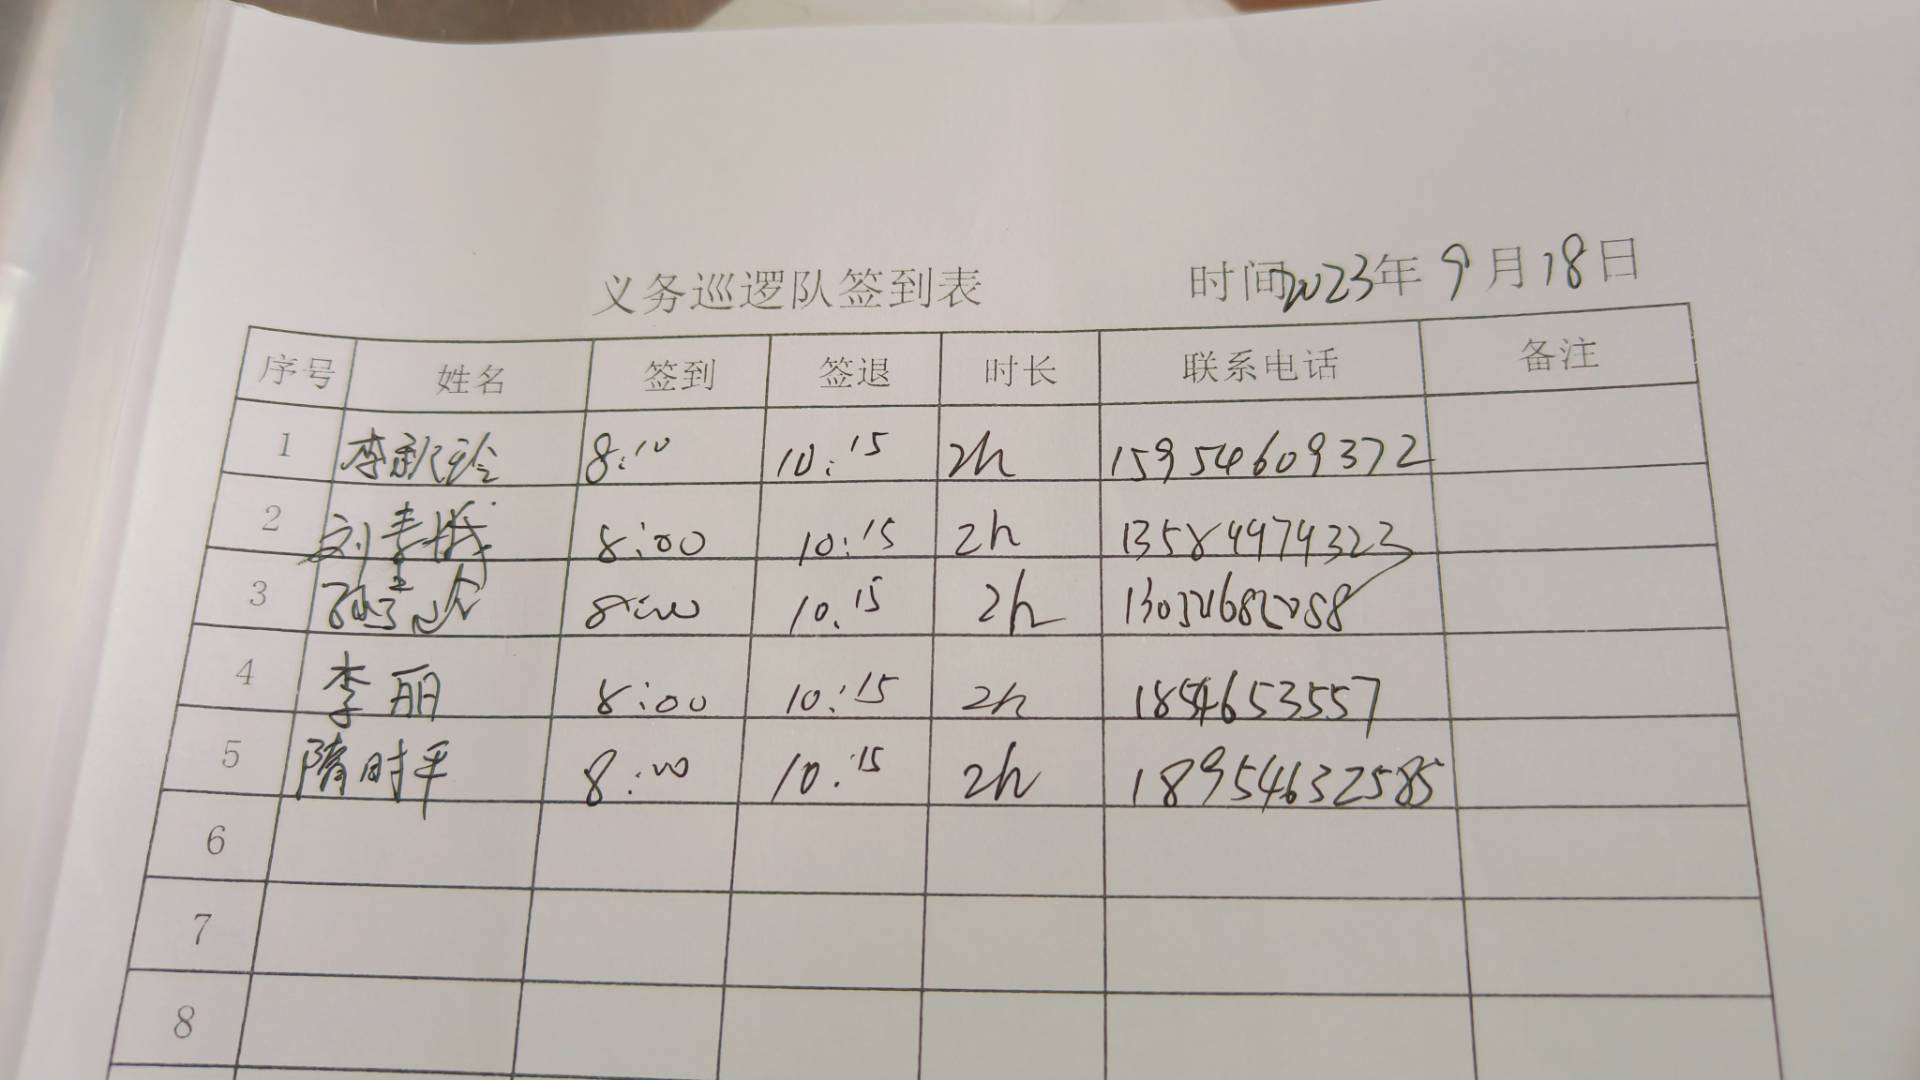 义务巡逻队签到表 时间2023年9月18日
序号 姓名 签到 签退 时长 联系电话 备注
1 李 8:10 10:15 2h 15954609372
2 刘 8:00 10:15 2h
3 8:00 10:15 2h
4 李丽 8:00 10:15 2h 1854653557
5 隋时平 8:00 10:15 2h 18954632585
6
7
8